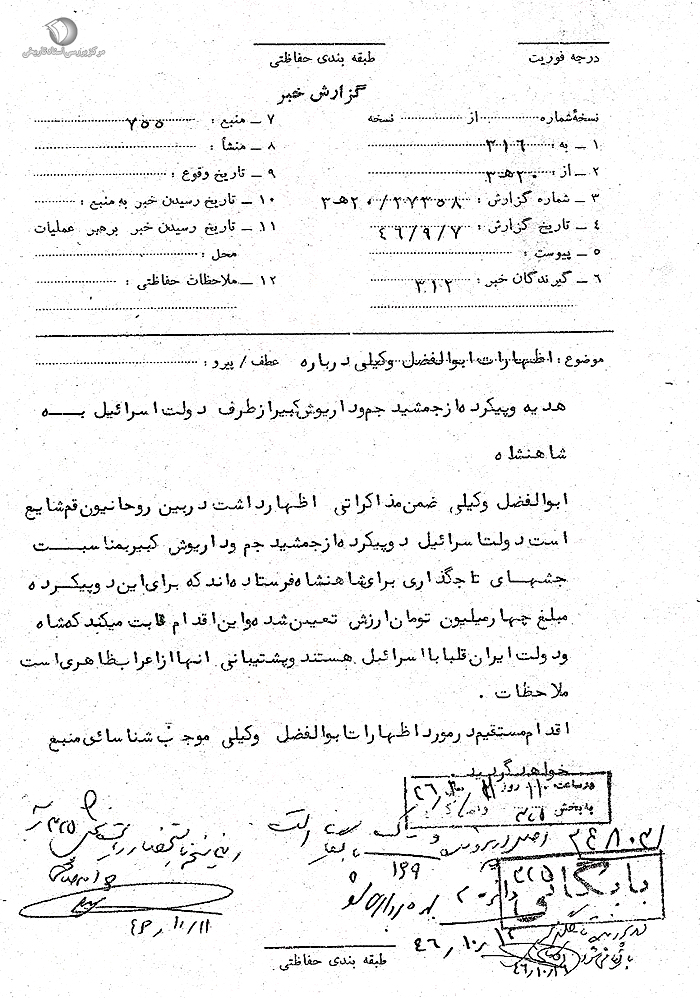 مرکز بررسی اسناد تاریخی
درجه فوریت
طبقه بندی حفاظتی
گزارش خبر
نسخهٔ شماره ........ از ........ نسخه
۱ ــ به : ۳۱۶
۲ ــ از : ۲۰ه‍ ۳
۳ ــ شماره گزارش : ۲۷۳۵۸/۲۰ه‍ ۳
۴ ــ تاریخ گزارش : ۴۶/۹/۷
۵ ــ پیوست :
۶ ــ گیرندگان خبر : ۳۱۲
۷ ــ منبع : ۷۵۵
۸ ــ منشأ :
۹ ــ تاریخ وقوع :
۱۰ ــ تاریخ رسیدن خبر به منبع :
۱۱ ــ تاریخ رسیدن خبر برهبر عملیات
محل :
۱۲ ــ ملاحظات حفاظتی :
موضوع : اظهارات ابوالفضل وکیلی درباره عطف / پیرو :
هدیه دوپیکره از جمشید جم و داریوش کبیر از طرف دولت اسرائیل به
شاهنشاه
ابوالفضل وکیلی ضمن مذاکراتی اظهار داشت در بین روحانیون قم شایع
است دولت اسرائیل دوپیکره از جمشید جم و داریوش کبیر بمناسبت
جشنهای تاجگذاری برای شاهنشاه فرستاده اند که برای این دوپیکره
مبلغ چهار میلیون تومان ارزش تعیین شده و این اقدام ثابت میکند که شاه
و دولت ایران قلبا با اسرائیل هستند و پشتیبانی آنها از اعراب ظاهری است
ملاحظات .
اقدام مستقیم در مورد اظهارات ابوالفضل وکیلی موجب شناسائی منبع
خواهد گردید .
در ساعت ۱۰ روز
به بخش ۳۲۵
۳۴۸۰۳۱
۱۶۹
بایگانی
۳۲۵
بهره برداری شود
۴۶/۱۰/۱۱
۴۶/۱۰/۱۲
۴۶/۱۰/۱۶
طبقه بندی حفاظتی